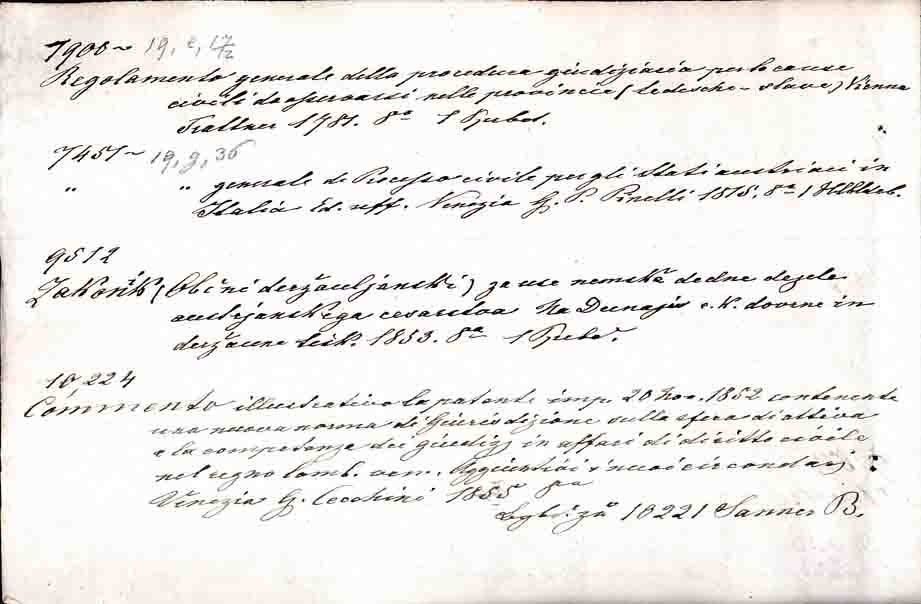 7900~ 19, e, 17/2
Regolamento generale della procedura giudiziaria per le cause
civili da osservarsi nelle provincie (tedesche-slave) Vienna
Trattner 1781. 8° 1
7451~ 19, g, 36
" " generale di Processo civile per gli Stati austriaci in
Italia Ed. uff. Venezia G. P. Pinelli 1815. 8° 1
9512
Zakonik (Občni deržavljanski) za vse nemške dedne dezele
austrijanskega cesarstva Na Dunaju c. k. dvorne in
deržavne tisk. 1853. 8° 1
10,224
Commento illustrativo la patente imp. 20 Nov. 1852 contenente
una nuova norma di Giurisdizione sulla sfera di attiva
e la competenza dei giudizj in affari di diritto civile
nel regno lomb. ven. Aggiuntivi i nuovi circondarj
Venezia G. Cecchini 1855 8°
10221 Sanner B.